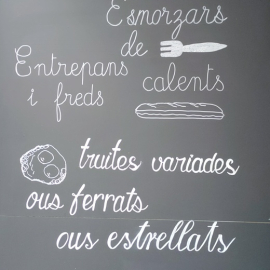 Esmorzars
de
Entrepans
calents
i freds
truites variades
ous ferrats
ous estrellats